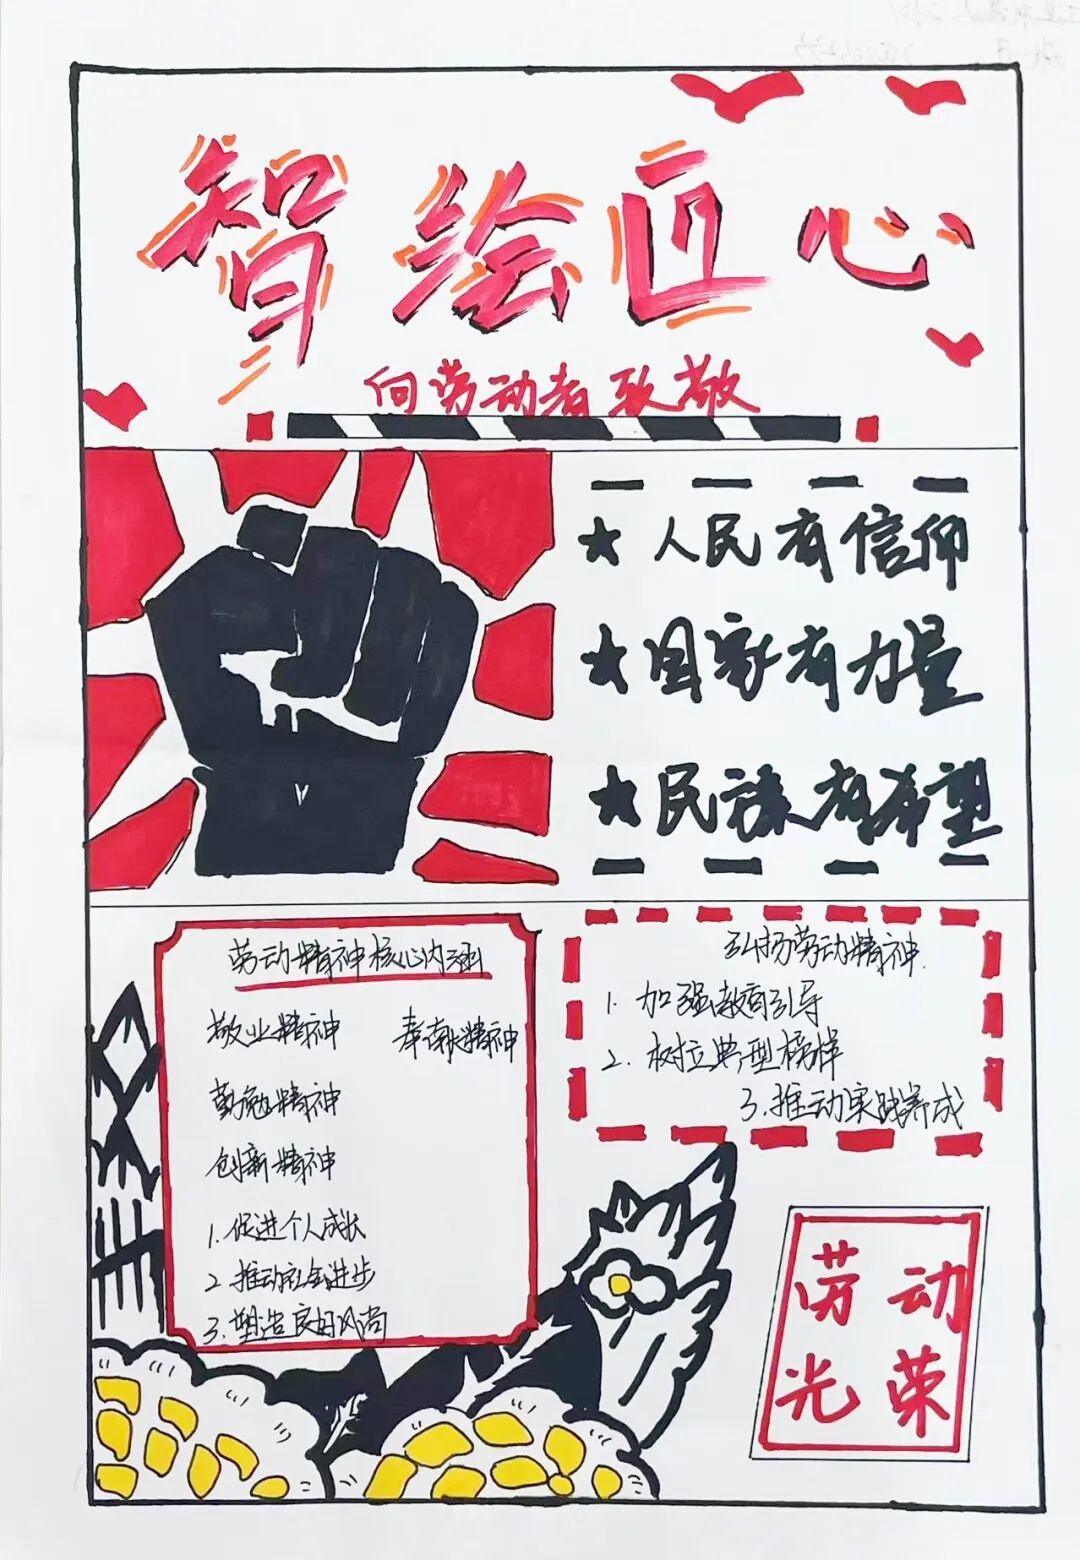 智绘匠心
向劳动者致敬
★人民有信仰
★国家有力量
★民族有希望
劳动精神核心内涵
敬业精神 奉献精神
勤勉精神
创新精神
1.促进个人成长
2.推动社会进步
3.塑造良好风尚
弘扬劳动精神.
1.加强教育引导
2.树立典型榜样
3.推动实践养成
劳动
光荣